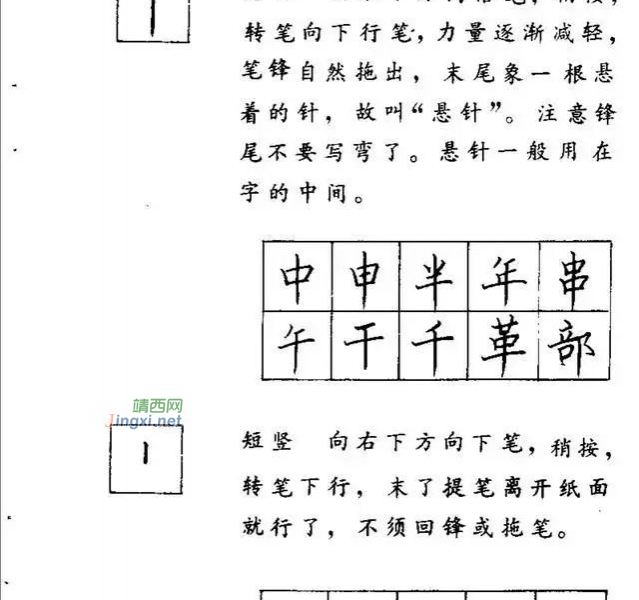 转笔向下行笔，力量逐渐减轻，
笔锋自然拖出，末尾象一根悬
着的针，故叫“悬针”。注意锋
尾不要写弯了。悬针一般用在
字的中间。
中 申 半 年 串
午 干 千 革 部
靖西网
Jingxi.net
短竖 向右下方向下笔，稍按，
转笔下行，末了提笔离开纸面
就行了，不须回锋或拖笔。